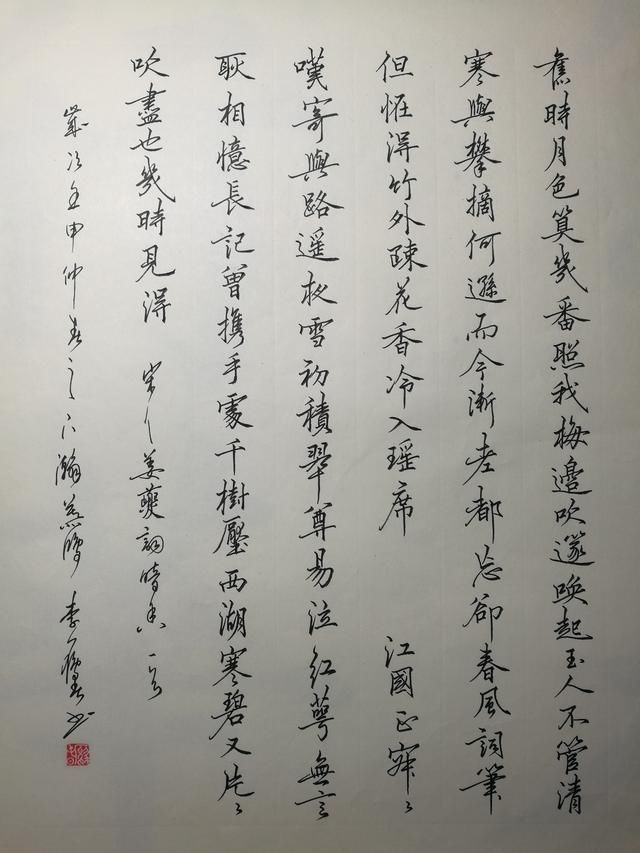 舊時月色算幾番照我梅邊吹篴喚起玉人不管清
寒與攀摘何遜而今漸老都忘卻春風詞筆
但恠得竹外疎花香冷入瑤席 江國正寂〻
嘆寄與路遥夜雪初積翠尊易泣紅萼無言
耿相憶長記曾携手處千樹壓西湖寒碧又片〻
吹盡也幾時見得 宋人姜夔詞暗香一首
歲次壬申仲春之下瀚 李 書